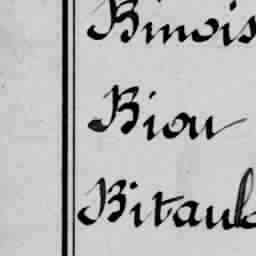 Binois
Biou
Bitaub